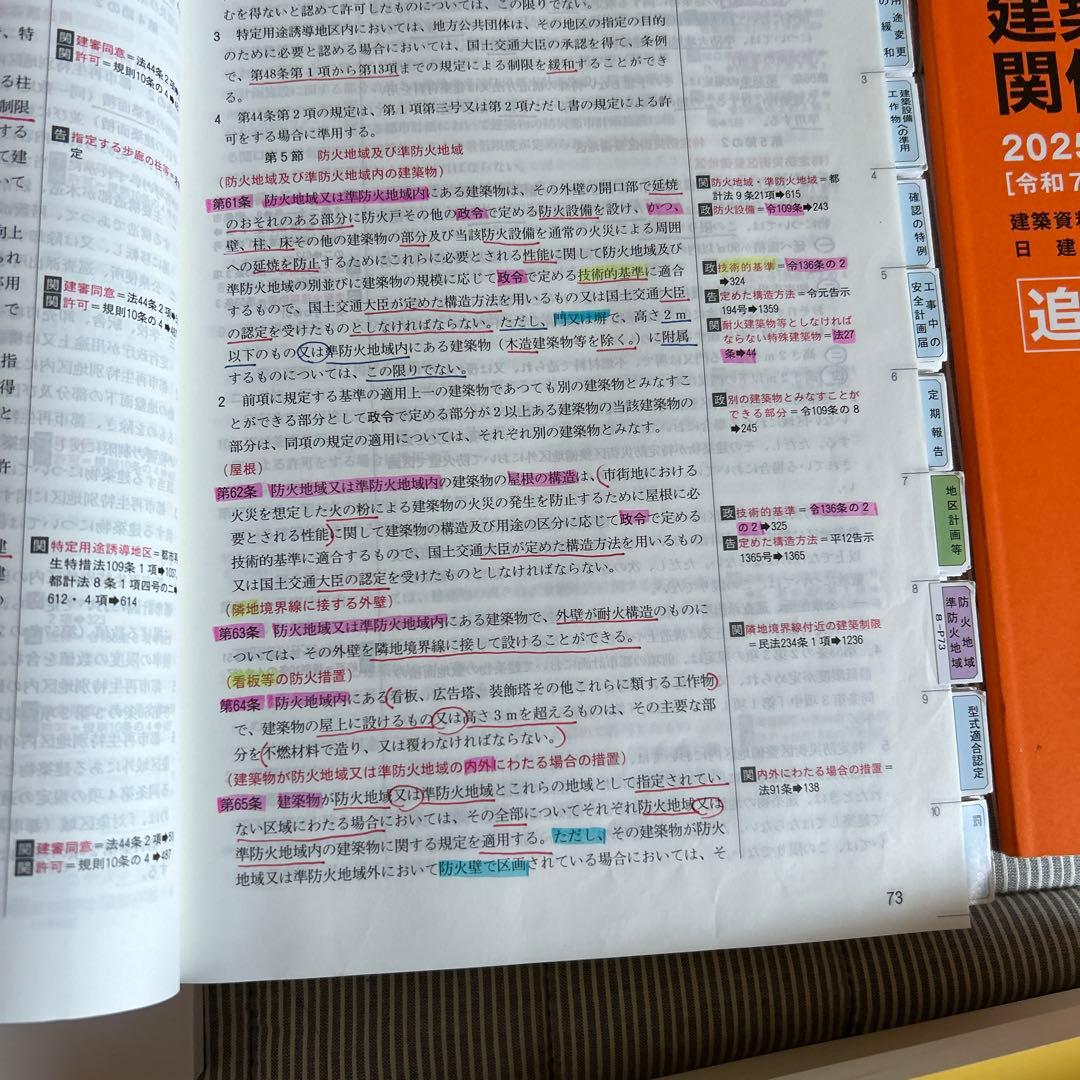 むを得ないと認めて許可したものについては、この限りでない。
3 特定用途誘導地区内においては、地方公共団体は、その地区の指定の目的
のために必要と認める場合においては、国土交通大臣の承認を得て、条例
で、第48条第1項から第13項までの規定による制限を緩和することができ
る。
4 第44条第2項の規定は、第1項第三号又は第2項ただし書の規定による許
可をする場合に準用する。
第5節 防火地域及び準防火地域
(防火地域及び準防火地域内の建築物)
第61条 防火地域又は準防火地域内にある建築物は、その外壁の開口部で延焼
のおそれのある部分に防火戸その他の政令で定める防火設備を設け、かつ、
壁、柱、床その他の建築物の部分及び当該防火設備を通常の火災による周囲
への延焼を防止するためにこれらに必要とされる性能に関して防火地域及び
準防火地域の別並びに建築物の規模に応じて政令で定める技術的基準に適合
するもので、国土交通大臣が定めた構造方法を用いるもの又は国土交通大臣
の認定を受けたものとしなければならない。ただし、門又は塀で、高さ2m
以下のもの又は準防火地域内にある建築物(木造建築物等を除く。)に附属
するものについては、この限りでない。
2 前項に規定する基準の適用上一の建築物であつても別の建築物とみなすこ
とができる部分として政令で定める部分が2以上ある建築物の当該建築物の
部分は、同項の規定の適用については、それぞれ別の建築物とみなす。
(屋根)
第62条 防火地域又は準防火地域内の建築物の屋根の構造は、市街地における
火災を想定した火の粉による建築物の火災の発生を防止するために屋根に必
要とされる性能に関して建築物の構造及び用途の区分に応じて政令で定める
技術的基準に適合するもので、国土交通大臣が定めた構造方法を用いるもの
又は国土交通大臣の認定を受けたものとしなければならない。
(隣地境界線に接する外壁)
第63条 防火地域又は準防火地域内にある建築物で、外壁が耐火構造のものに
ついては、その外壁を隣地境界線に接して設けることができる。
(看板等の防火措置)
第64条 防火地域内にある看板、広告塔、装飾塔その他これらに類する工作物
で、建築物の屋上に設けるもの又は高さ3mを超えるものは、その主要な部
分を不燃材料で造り、又は覆わなければならない。
(建築物が防火地域又は準防火地域の内外にわたる場合の措置)
第65条 建築物が防火地域又は準防火地域とこれらの地域として指定されてい
ない区域にわたる場合においては、その全部についてそれぞれ防火地域又は
準防火地域内の建築物に関する規定を適用する。ただし、その建築物が防火
地域又は準防火地域外において防火壁で区画されている場合においては、そ
73
関 防火地域・準防火地域=都
計法9条21項➡615
政 防火設備=令109条➡243
政 技術的基準=令136条の2
➡324
告 定めた構造方法=令元告示
194号➡1359
関 耐火建築物等としなければ
ならない特殊建築物=法27
条➡44
政 別の建築物とみなすことが
できる部分=令109条の8
➡245
政 技術的基準=令136条の2
の2➡325
告 定めた構造方法=平12告示
1365号➡1365
関 隣地境界線付近の建築制限
=民法234条1項➡1236
関 内外にわたる場合の措置=
法91条➡138
関 建審同意=法44条2項
関 許可=規則10条の4
告 指定する歩廊の柱等=
定
関 建審同意=法44条2項
関 許可=規則10条の4➡
関 特定用途誘導地区=都市再
生特措法109条1項➡
都計法8条1項四号の二➡
612・4項➡614
関 建審同意=法44条2項➡
関 許可=規則10条の4➡487
用途変更
の緩和
3
建築設備への準用
工作物
4
確認の特例
5
工事中の
安全計画届
6
定期報告
7
地区計画等
8
防火地域
準防火地域
8-P73
9
型式適合認定
10
建築
関係
2025
[令和7
建築資料
日建
追